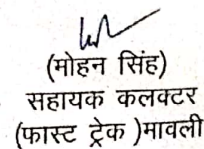 (मोहन सिंह)
सहायक कलक्टर
(फास्ट ट्रेक )मावली